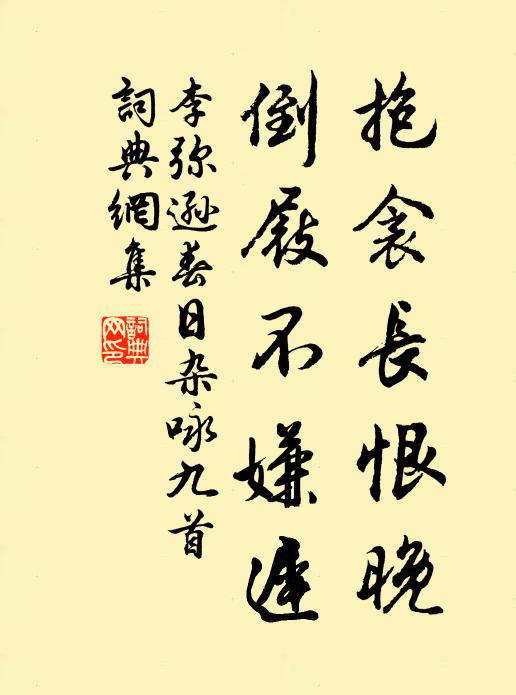 抱衾長恨晚
倒屐不嫌遲
李弥遜春日杂咏九首
詞典網集
詞典网印